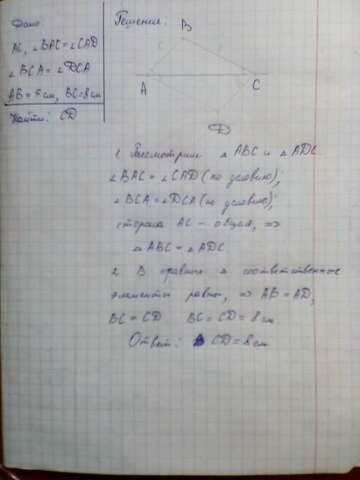 Дано
AC, ∠BAC=∠CAD
∠BCA=∠DCA
AB = 5 см, BC=8 см
Найти: CD
Решение:
B
A
C
D
1. Рассмотрим △ABC и △ADC
∠BAC=∠CAD (по условию);
∠BCA=∠DCA (по условию);
сторона AC - общая, =>
△ABC=△ADC
2. В равных △ соответственные
элементы равны, => AB=AD,
BC=CD BC=CD=8 см
Ответ: CD=8 см